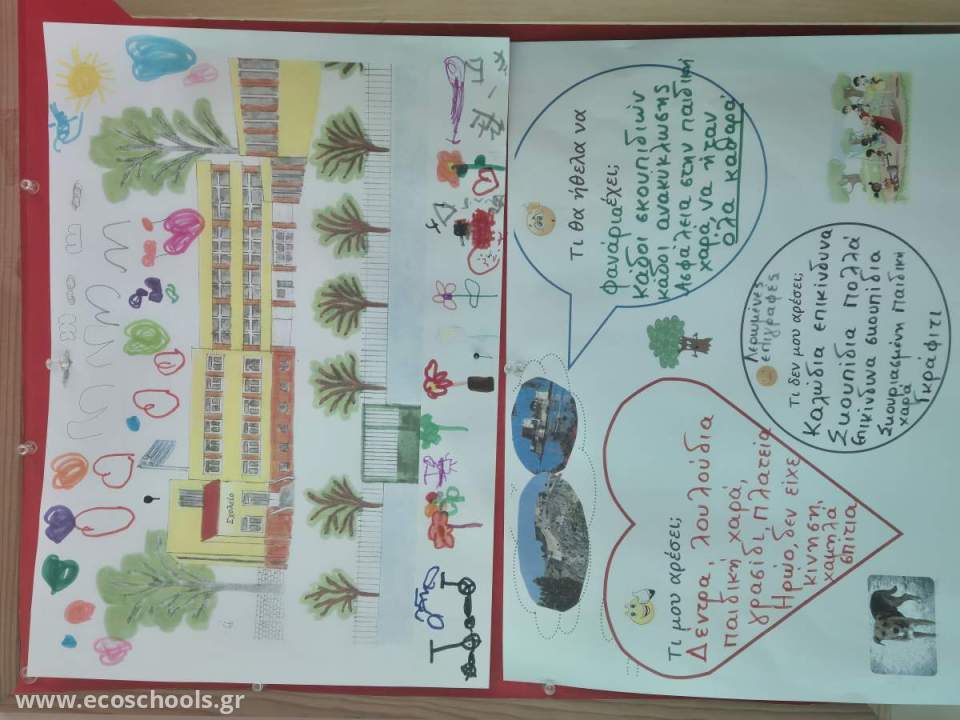 Σχολείο
Τι θα ήθελα να
φανάρια έχει;
Κάδοι σκουπιδιών
κάδοι ανακύκλωσης
Ασφάλεια στην παιδική
χαρά, να ήταν
όλα καθαρά.
Λερωμένες
επιγραφές
Τι δεν μου αρέσει;
Καλώδια επικίνδυνα
Σκουπίδια πολλά
Επικίνδυνα σκουπίδια
Σκουριασμένη παιδική
χαρά
Γκράφιτι
Τι μου αρέσει;
Δέντρα, λουλούδια
παιδική χαρά,
γρασίδι, πλατεία
Ηρώο, δεν είχε
κίνηση,
χαμηλά
σπίτια
www.ecoschools.gr